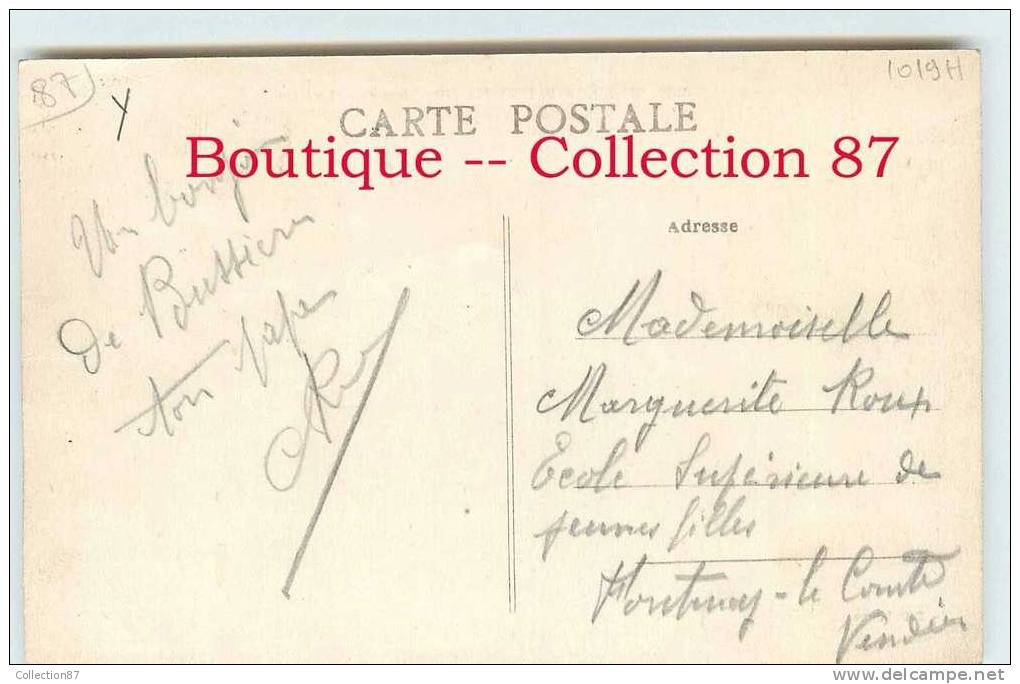 87
1019H
CARTE POSTALE
Boutique -- Collection 87
Un bonjour
de Bussière
ton papa
Adresse
Mademoiselle
Marguerite Roux
Ecole Supérieure de
jeunes filles
Fontenay-le Comte
Vendée
Collection87
www.delcampe.net